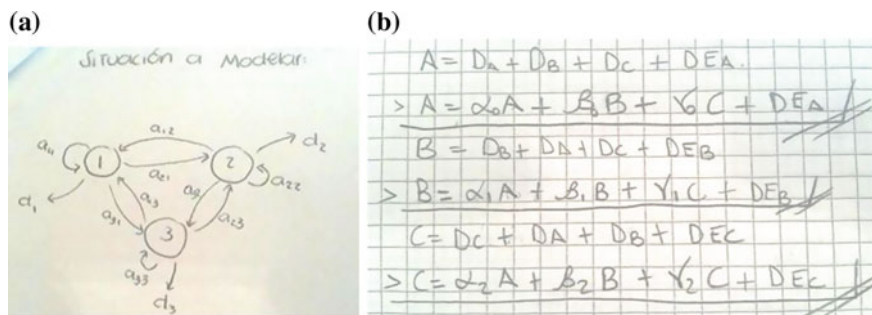 (a)
Situación a Modelar:
a₁₂
a₁₁ 1 a₂₁ 2 d₂
a₂₂
d₁ a₃₁ a₁₃ a₂₃
3
a₃₃
d₃
(b)
A = D_A + D_B + D_C + DE_A.
> A = α₀A + β₀B + γ₀C + DE_A
B = D_B + D_A + D_C + DE_B
> B = α₁A + β₁B + γ₁C + DE_B
C = D_C + D_A + D_B + DE_C
> C = α₂A + β₂B + γ₂C + DE_C